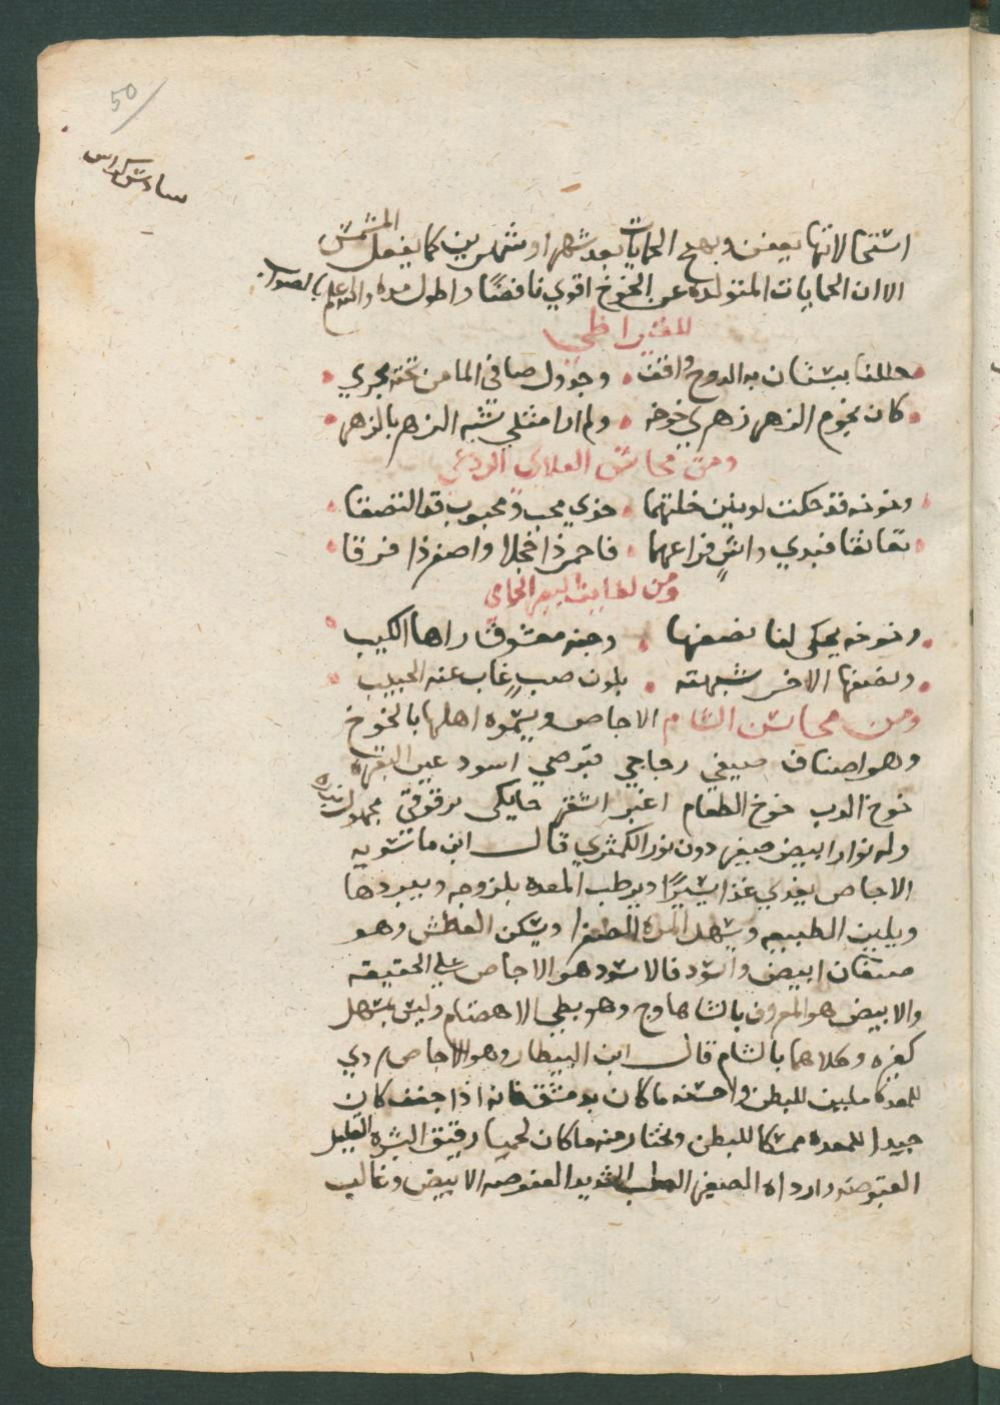 50
سادس كراس
استحالاتها يعفن ويهيج الحمايات بعد شهر او شهرين كما يفعل المشمش
الا ان الحمايات المتولده عن الخوخ اقوي نافضًا واطول مده والله اعلم بالصواب
للقيراطي
حللنا ببستان به الدوح واقف وجدول صافي الما من تحته يجري
كان نجوم الزهر زهري خوخه ولم ار مثلي شبه الزهر بالزهر
ومن محاسن العلاي الوداعي
وخوخه قد حكت لونين خلتهما خدي محب ومحبوب قد التصقا
تعانقا فبدي واشٍ فراعهما فاحمر ذا خجلا واصفر ذا فرقا
ومن لطايف
وخوخه يحكي لنا نصفها وجنه معشوق راها الكيب
ونصفها الاخر شبهته بلون صبٍ غاب عنه الحبيب
ومن محاسن الشام الاجاص ويسموه اهلها بالخوخ
وهو اصناف صيفي زجاجي قبرصي اسود عين البقره
خوخ الدب خوخ الطعام اغبر اشقر حايكي برقوقي مجهول
وله نوار ابيض صغير دون نور الكمثري قال ابن ماسويه
الاجاص يغدي غذا يسيرًا ويرطب المعده بلزوجه ويبردها
ويلين الطبيعه ويسهل المره الصفرا ويسكن العطش وهو
صنفان ابيض واسود فالاسود هو الاجاص علي الحقيقه
والابيض هو المعروف بالشاهلوج وهو بطي الاهضام وليس بمسهل
كغيره وكلاهما بالشام قال ابن البيطار وهو الاجاص ردي
للمعده ملين للبطن واحسنه ما كان بدمشق فانه اذا جفف كان
جيدا للمعده ممسكا للبطن ويختار منه ما كان لحميا رقيق البشره القليل
العفوصه واردا اه الصغير الصلب الشديد العفوصه الابيض وغالب